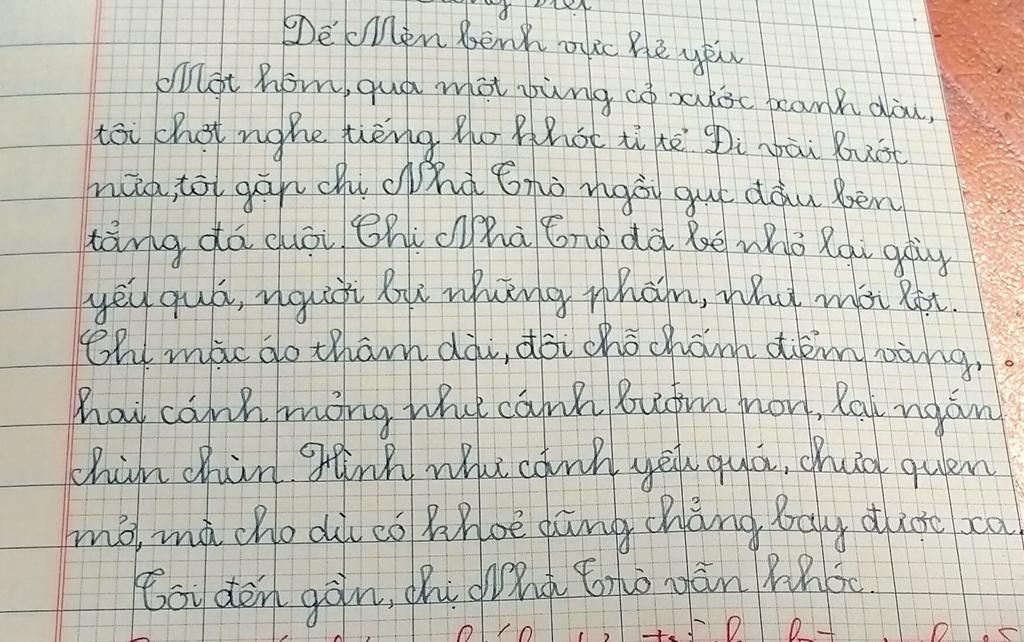 Dế Mèn bênh vực kẻ yếu
Một hôm, qua một vùng cỏ xước xanh dài,
tôi chợt nghe tiếng ho khóc tỉ tê. Đi vài bước
nữa, tôi gặp chị Nhà Trò ngồi gục đầu bên
tảng đá cuội. Chị Nhà Trò đã bé nhỏ lại gầy
yếu quá, người bự những phấn, như mới lột.
Chị mặc áo thâm dài, đôi chỗ chấm điểm vàng,
hai cánh mỏng như cánh bướm non, lại ngắn
chùn chùn. Hình như cánh yếu quá, chưa quen
mở, mà cho dù có khoẻ cũng chẳng bay được xa
Tôi đến gần, chị Nhà Trò vẫn khóc.